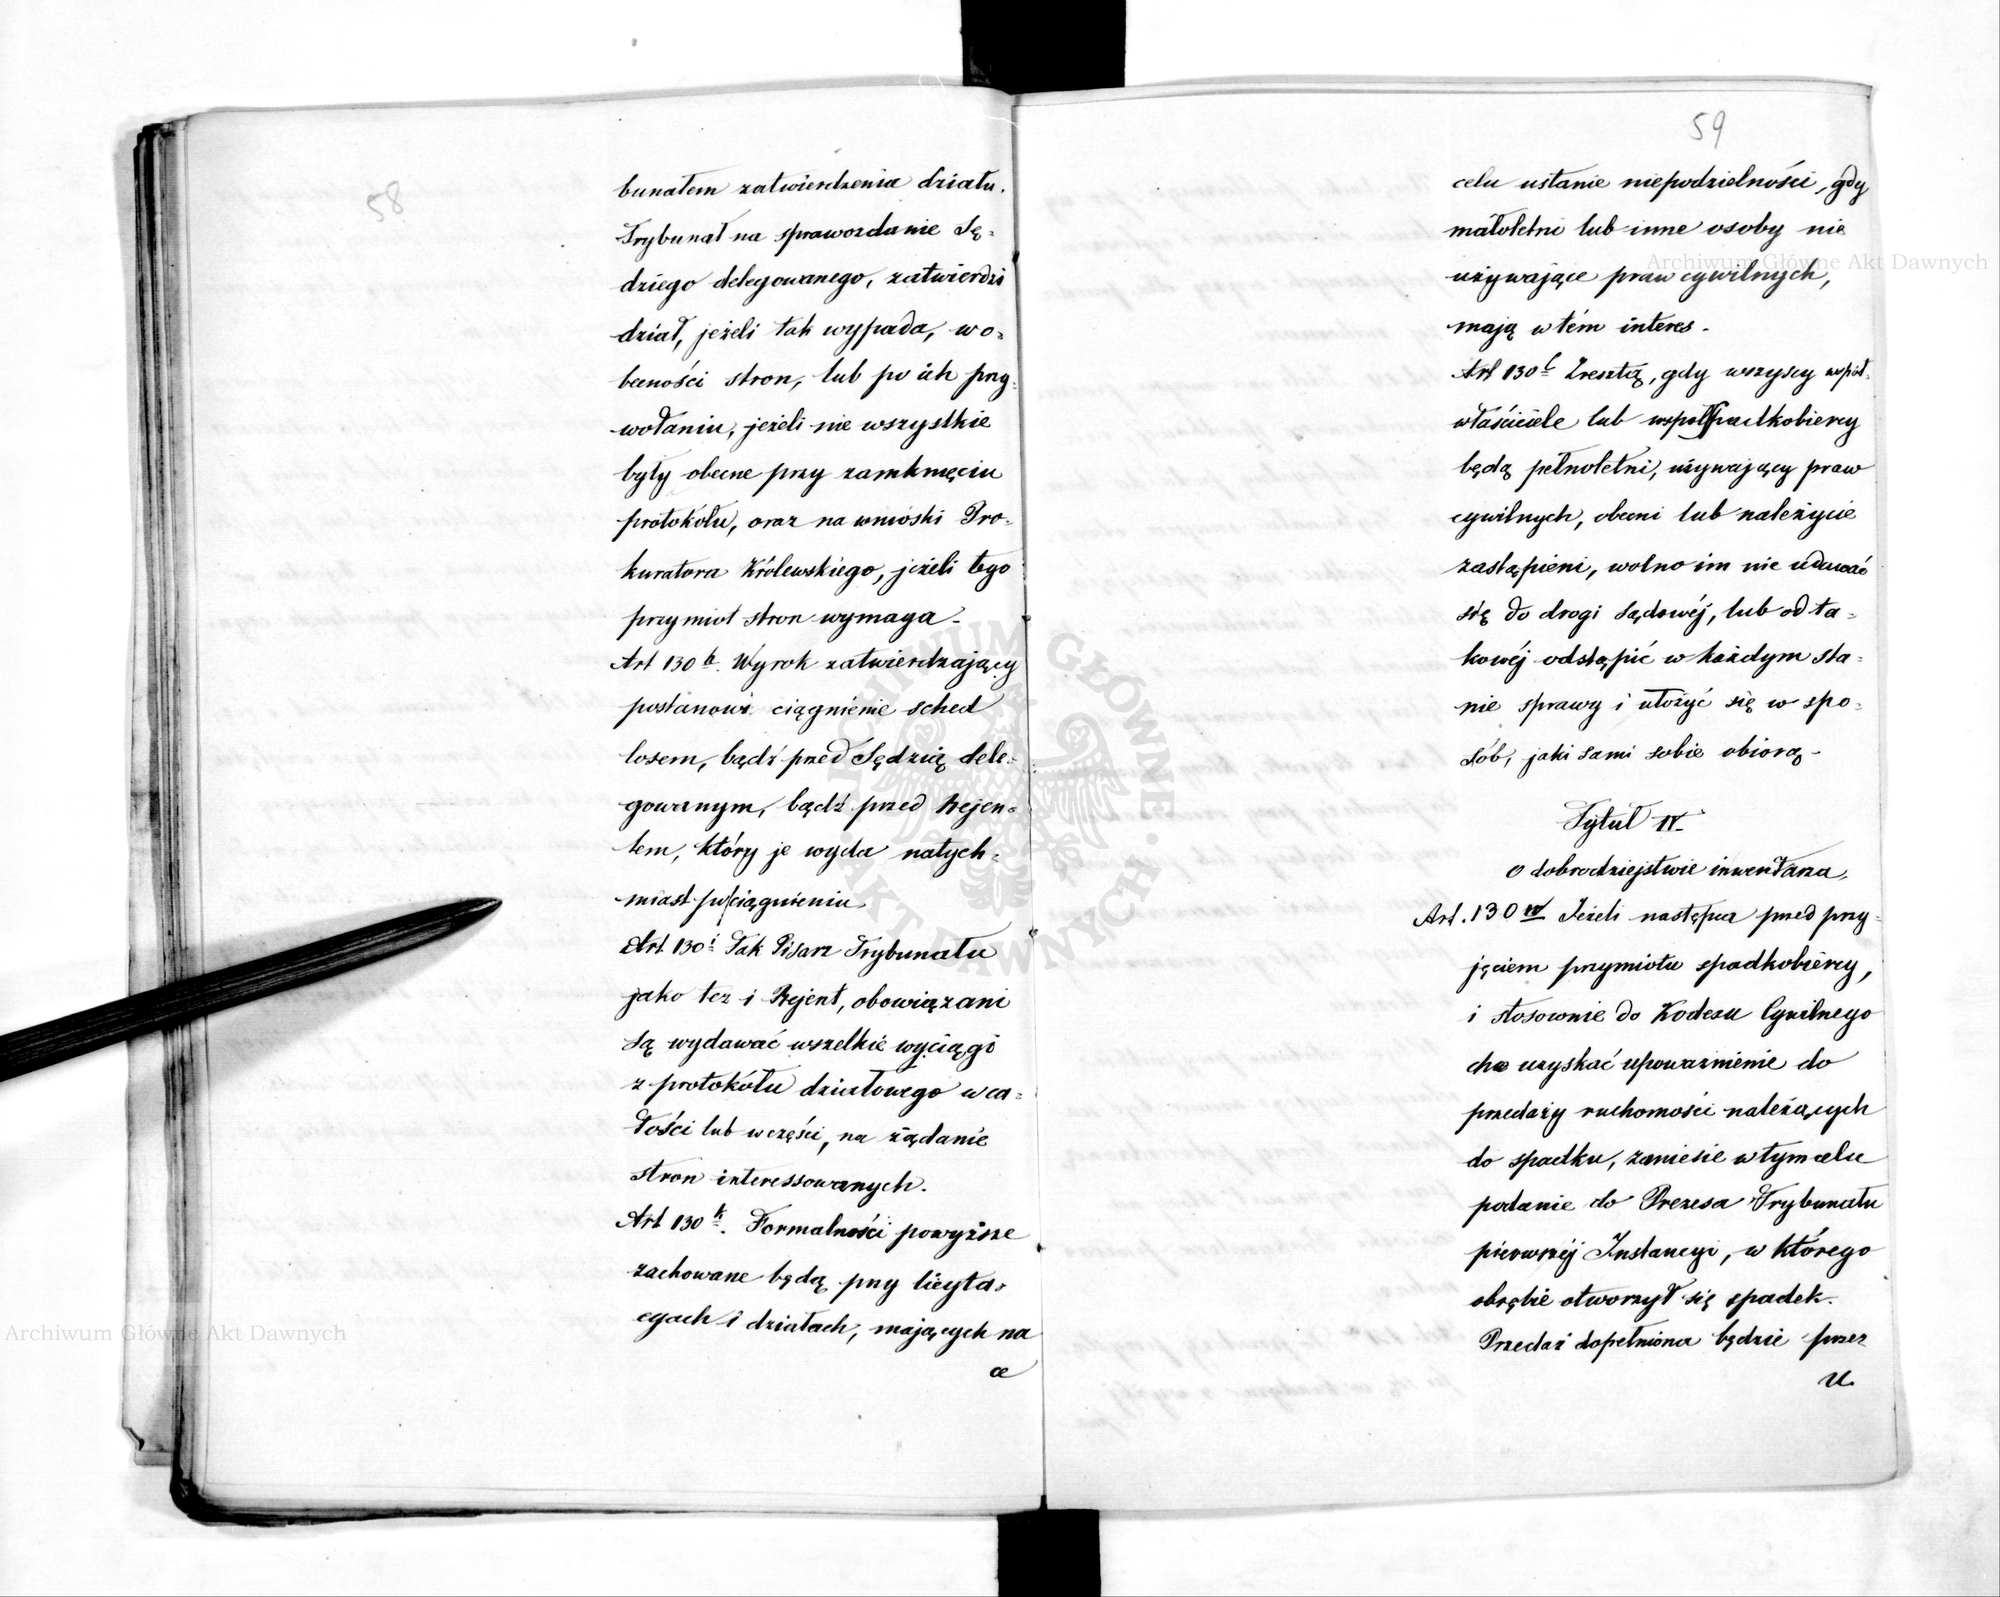 58
bunałem zatwierdzenia działu.
Trybunał na sprawozdanie Sę-
dziego delegowanego, zatwierdzi
dział, jeżeli tak wypada, wo-
becności stron, lub po ich przy-
wołaniu, jeżeli nie wszystkie
były obecne przy zamknięciu
protokółu, oraz na wnioski Pro-
kuratora Królewskiego, jeżeli tego
przymiot stron wymaga.
Art 130 h. Wyrok zatwierdzający
postanowi ciągnienie sched
losem, bądź przed Sędzią dele-
gowanym, bądź przed Rejen-
tem, który je wyda natych-
miast po ciągnieniu
Art 130 i Tak Pisarz Trybunału
jako też i Rejent, obowiązani
są wydawać wszelkie wyciągi
z protokółu działowego w ca-
łości lub w części, na żądanie
stron interessowanych.
Art 130 k. Formalności powyższe
zachowane będą przy licyta-
cyach i działach, mających na
ce
59
celu ustanie niepodzielności, gdy
małoletni lub inne osoby nie
używające praw cywilnych,
mają w tém interes.
Art 130 l Zresztą, gdy wszyscy współ-
właściciele lub współspadkobiercy
będą pełnoletni, używający praw
cywilnych, obecni lub należycie
zastąpieni, wolno im nie udawać
się do drogi sądowéj, lub od ta-
kowéj odstąpić w każdym sta-
nie sprawy i ułożyć się w spo-
sób, jaki sami sobie obiorą.
Tytuł IV.
O dobrodziejstwie inwentarza.
Art. 130 m Jeżeli następca przed przy-
jęciem przymiotu spadkobiercy,
i stosownie do Kodexu Cywilnego
chce uzyskać upoważnienie do
przedaży ruchomości należących
do spadku, zaniesie w tym celu
podanie do Prezesa Trybunału
pierwszéj Instancyi, w którego
obrębie otworzył się spadek.
Przedaż dopełniona będzie przez
u
Archiwum Główne Akt Dawnych
Archiwum Główne Akt Dawnych
ARCHIWUM GŁÓWNE AKT DAWNYCH